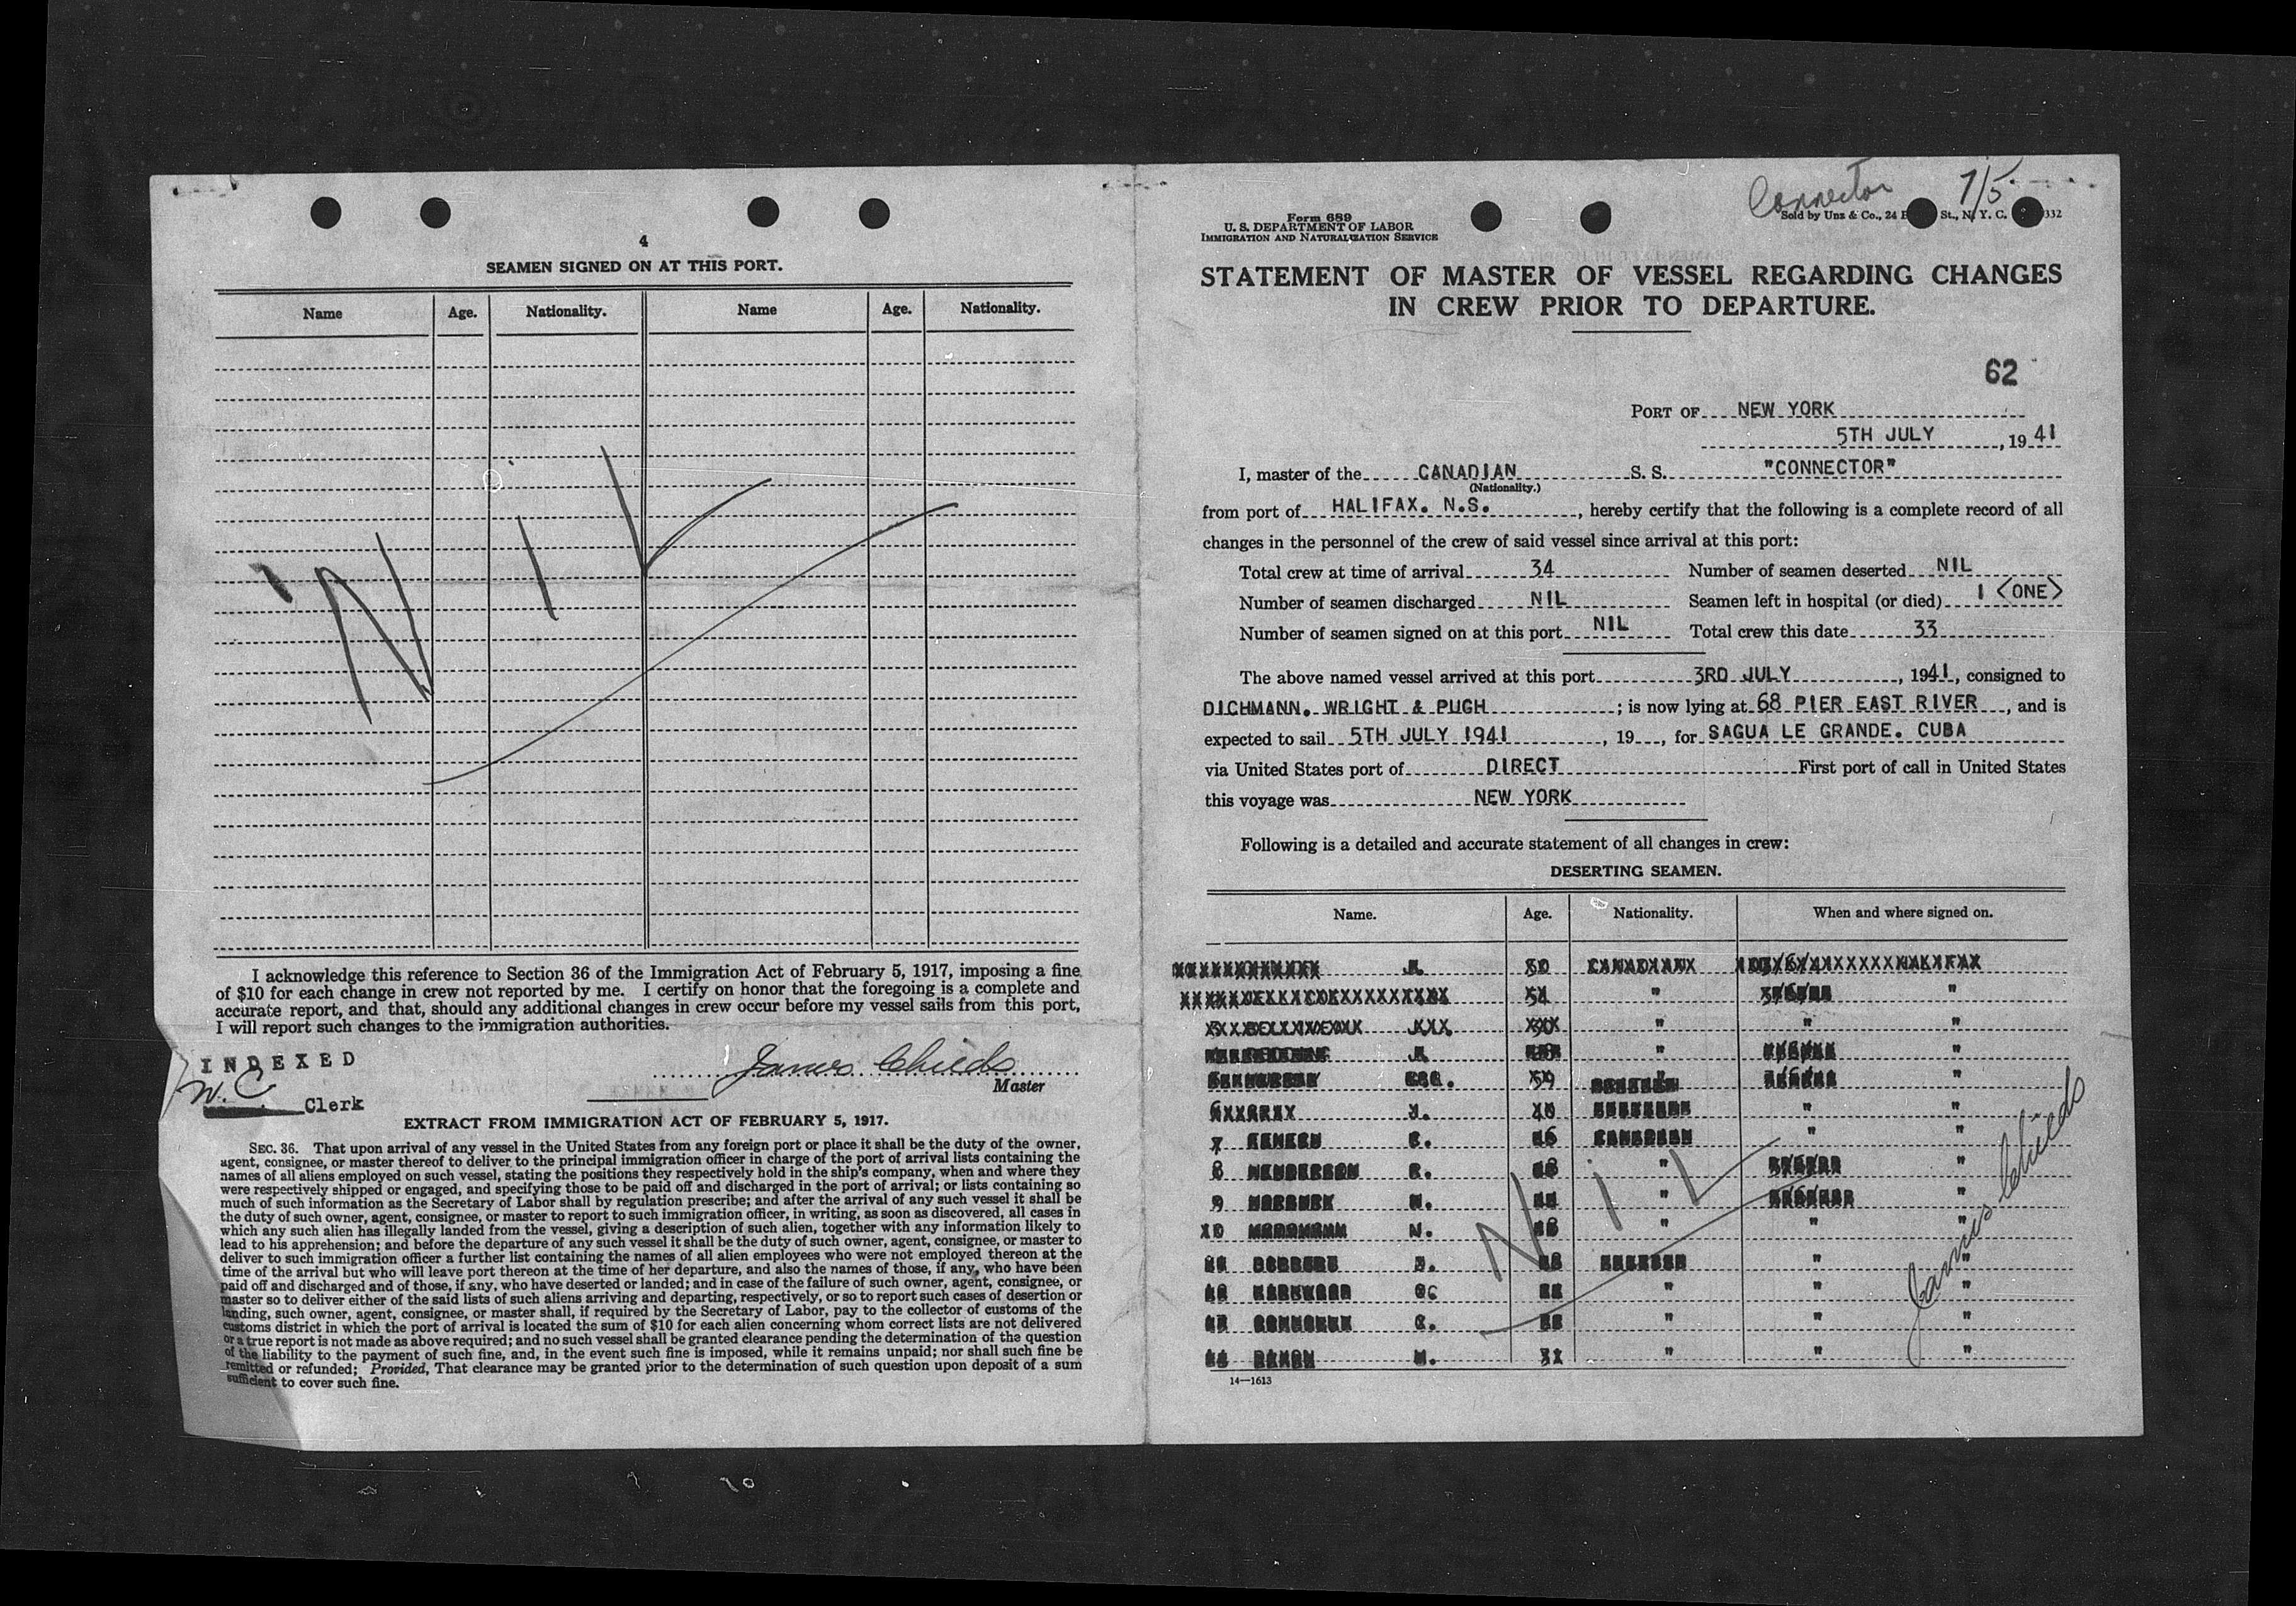 4
SEAMEN SIGNED ON AT THIS PORT.
Name Age. Nationality. Name Age. Nationality.
Nil
I acknowledge this reference to Section 36 of the Immigration Act of February 5, 1917, imposing a fine
of $10 for each change in crew not reported by me. I certify on honor that the foregoing is a complete and
accurate report, and that, should any additional changes in crew occur before my vessel sails from this port,
I will report such changes to the immigration authorities.
INDEXED
W. C.
Clerk
James Childs
Master
EXTRACT FROM IMMIGRATION ACT OF FEBRUARY 5, 1917.
SEC. 36. That upon arrival of any vessel in the United States from any foreign port or place it shall be the duty of the owner,
agent, consignee, or master thereof to deliver to the principal immigration officer in charge of the port of arrival lists containing the
names of all aliens employed on such vessel, stating the positions they respectively hold in the ship's company, when and where they
were respectively shipped or engaged, and specifying those to be paid off and discharged in the port of arrival; or lists containing so
much of such information as the Secretary of Labor shall by regulation prescribe; and after the arrival of any such vessel it shall be
the duty of such owner, agent, consignee, or master to report to such immigration officer, in writing, as soon as discovered, all cases in
which any such alien has illegally landed from the vessel, giving a description of such alien, together with any information likely to
lead to his apprehension; and before the departure of any such vessel it shall be the duty of such owner, agent, consignee, or master to
deliver to such immigration officer a further list containing the names of all alien employees who were not employed thereon at the
time of the arrival but who will leave port thereon at the time of her departure, and also the names of those, if any, who have been
paid off and discharged and of those, if any, who have deserted or landed; and in case of the failure of such owner, agent, consignee, or
master so to deliver either of the said lists of such aliens arriving and departing, respectively, or so to report such cases of desertion or
landing, such owner, agent, consignee, or master shall, if required by the Secretary of Labor, pay to the collector of customs of the
customs district in which the port of arrival is located the sum of $10 for each alien concerning whom correct lists are not delivered
or a true report is not made as above required; and no such vessel shall be granted clearance pending the determination of the question
of the liability to the payment of such fine, and, in the event such fine is imposed, while it remains unpaid; nor shall such fine be
remitted or refunded; Provided, That clearance may be granted prior to the determination of such question upon deposit of a sum
sufficient to cover such fine.
Connector 7/5
Form 689
U. S. DEPARTMENT OF LABOR
IMMIGRATION AND NATURALIZATION SERVICE
Sold by Unz & Co., 24 St., N. Y. C. 332
STATEMENT OF MASTER OF VESSEL REGARDING CHANGES
IN CREW PRIOR TO DEPARTURE.
62
PORT OF NEW YORK
5TH JULY, 1941
I, master of the CANADIAN S. S. "CONNECTOR"
(Nationality.)
from port of HALIFAX. N.S., hereby certify that the following is a complete record of all
changes in the personnel of the crew of said vessel since arrival at this port:
Total crew at time of arrival 34 Number of seamen deserted NIL
Number of seamen discharged NIL Seamen left in hospital (or died) 1 <ONE>
Number of seamen signed on at this port NIL Total crew this date 33
The above named vessel arrived at this port 3RD JULY, 1941, consigned to
DICHMANN. WRIGHT & PUGH; is now lying at 68 PIER EAST RIVER, and is
expected to sail 5TH JULY 1941, 19, for SAGUA LE GRANDE. CUBA
via United States port of DIRECT First port of call in United States
this voyage was NEW YORK
Following is a detailed and accurate statement of all changes in crew:
DESERTING SEAMEN.
Name. Age. Nationality. When and where signed on.
8 HENDERSON
9
Nil
James Childs
14—1613